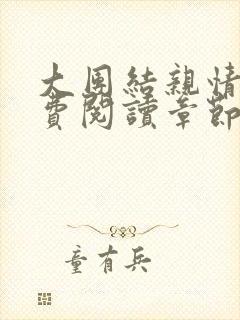 大团結親情
費閱讀章節
童有兵